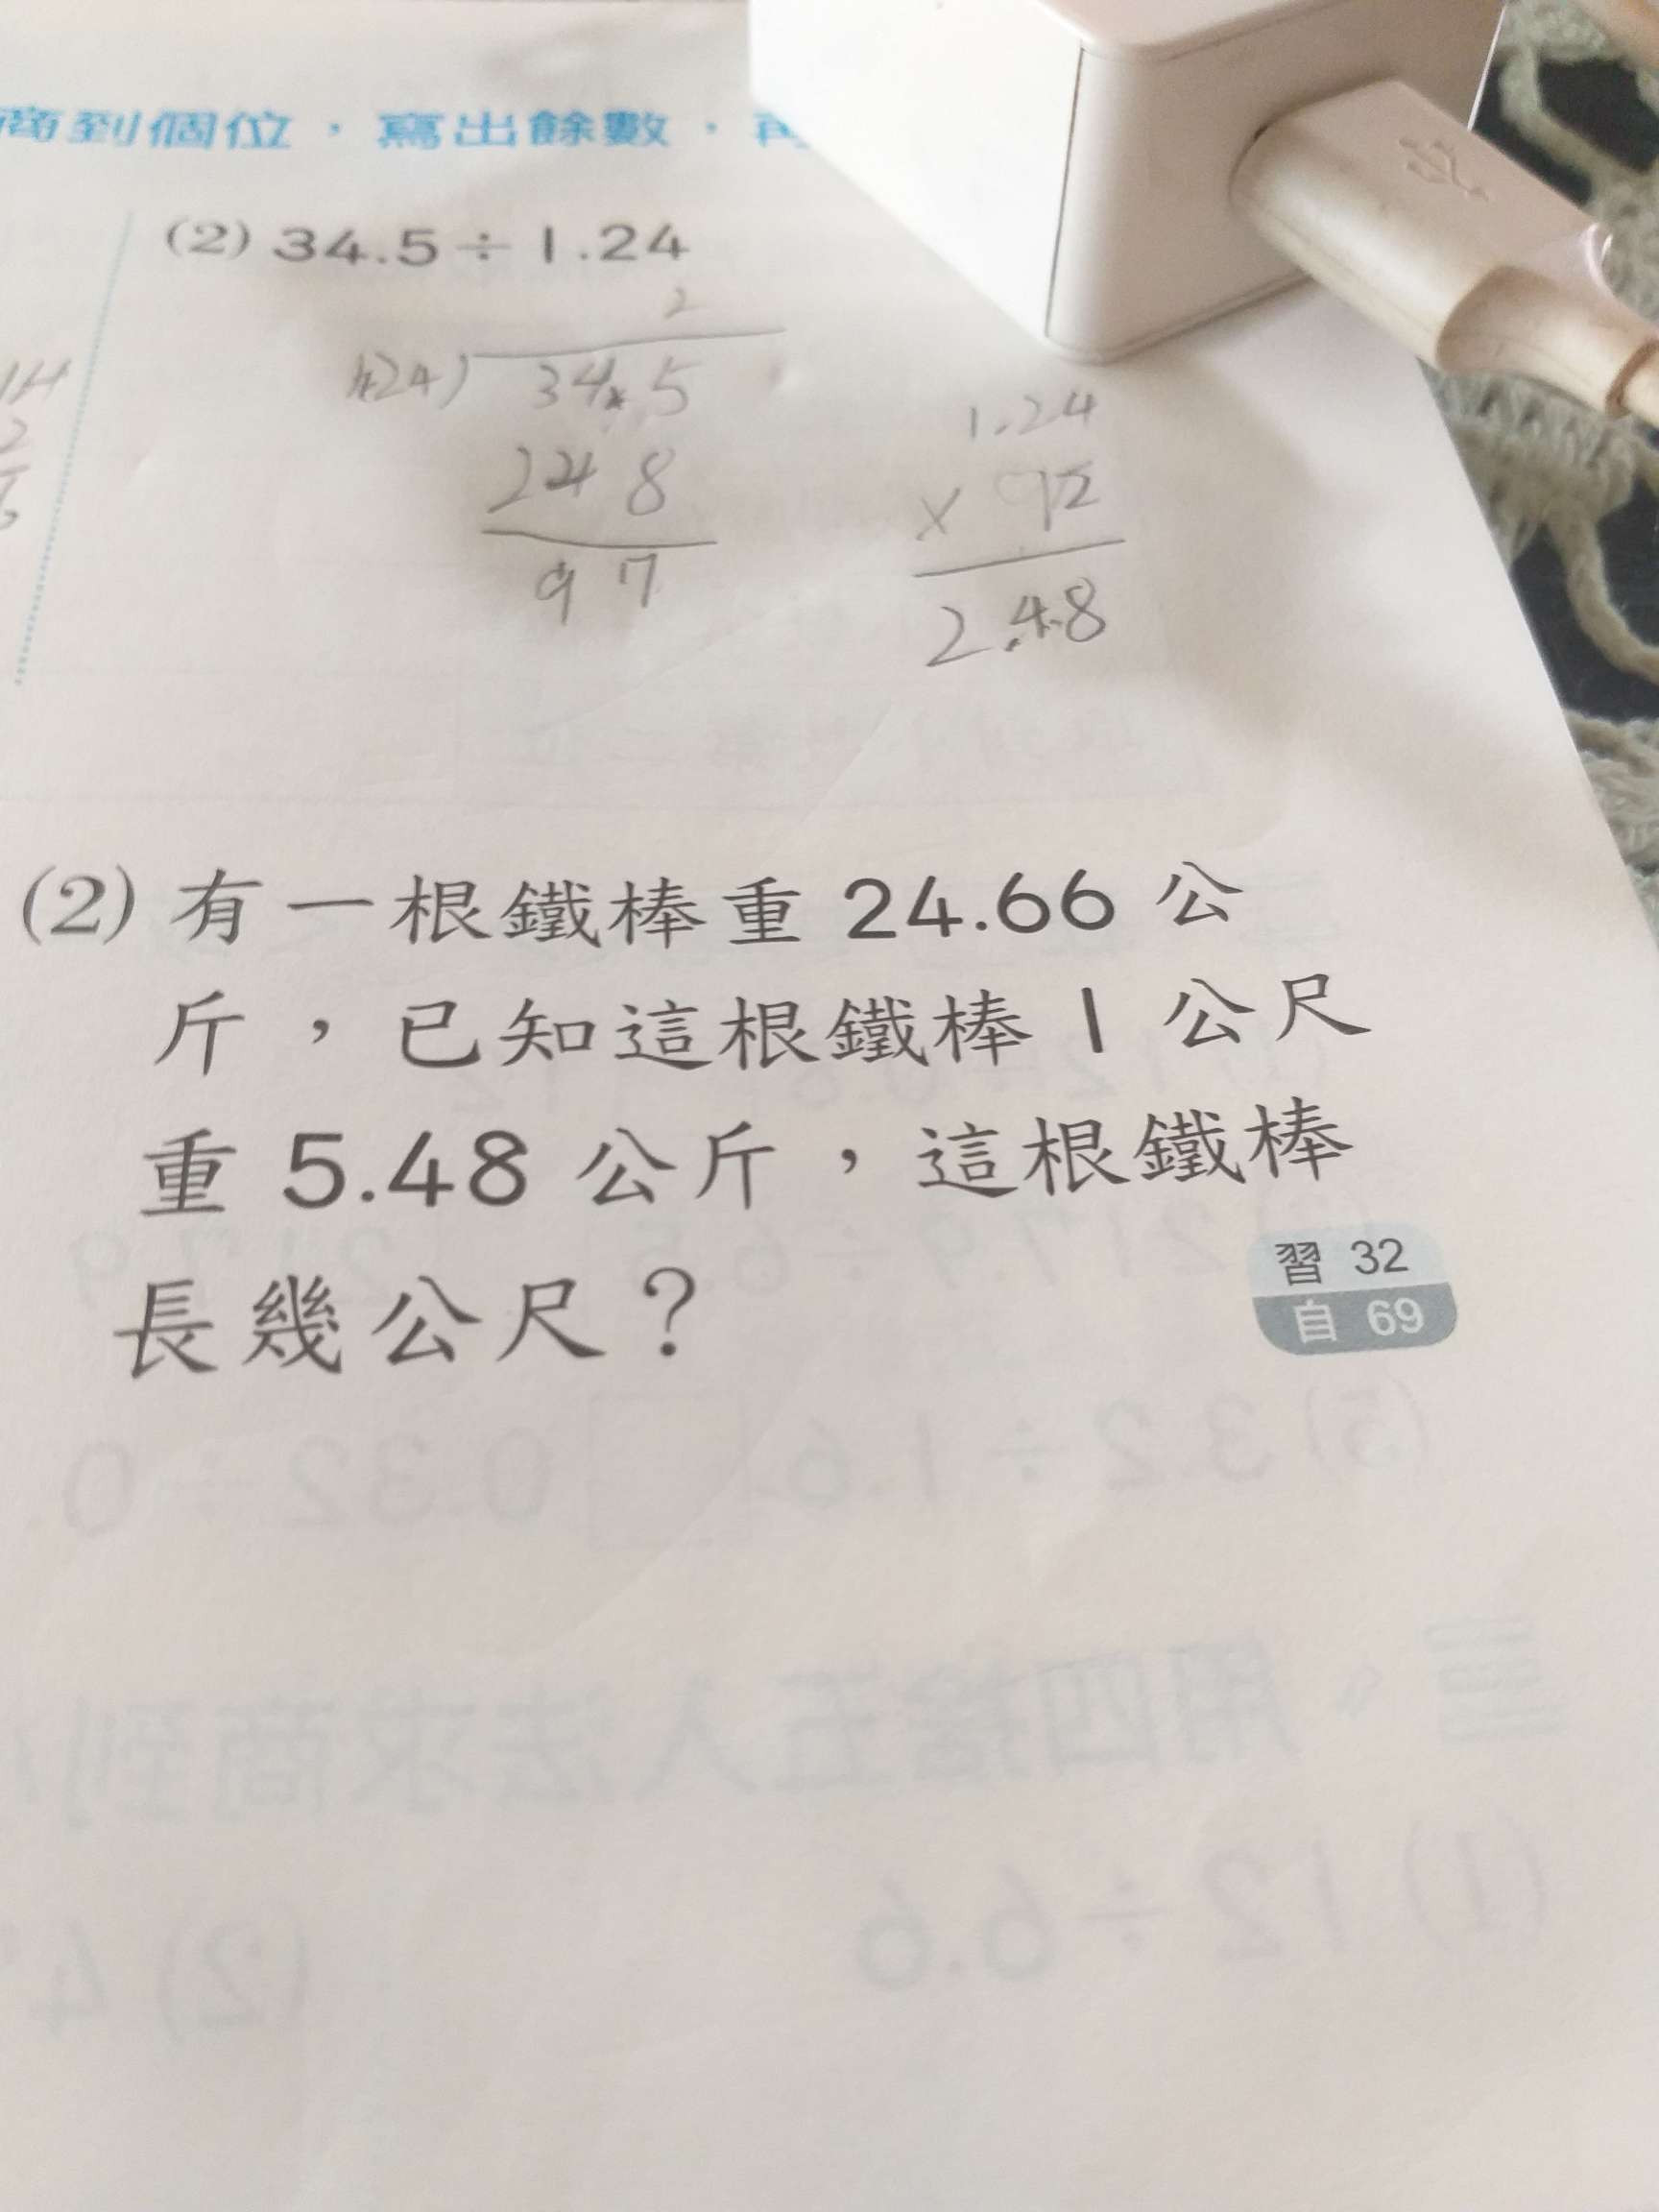 商到個位，寫出餘數，再
(2) 34.5÷1.24
2
124) 34.5
248
97
1.24
×
2.48
(2) 有一根鐵棒重 24.66 公
斤，已知這根鐵棒 1 公尺
重 5.48 公斤，這根鐵棒
長幾公尺？
習 32
自 69